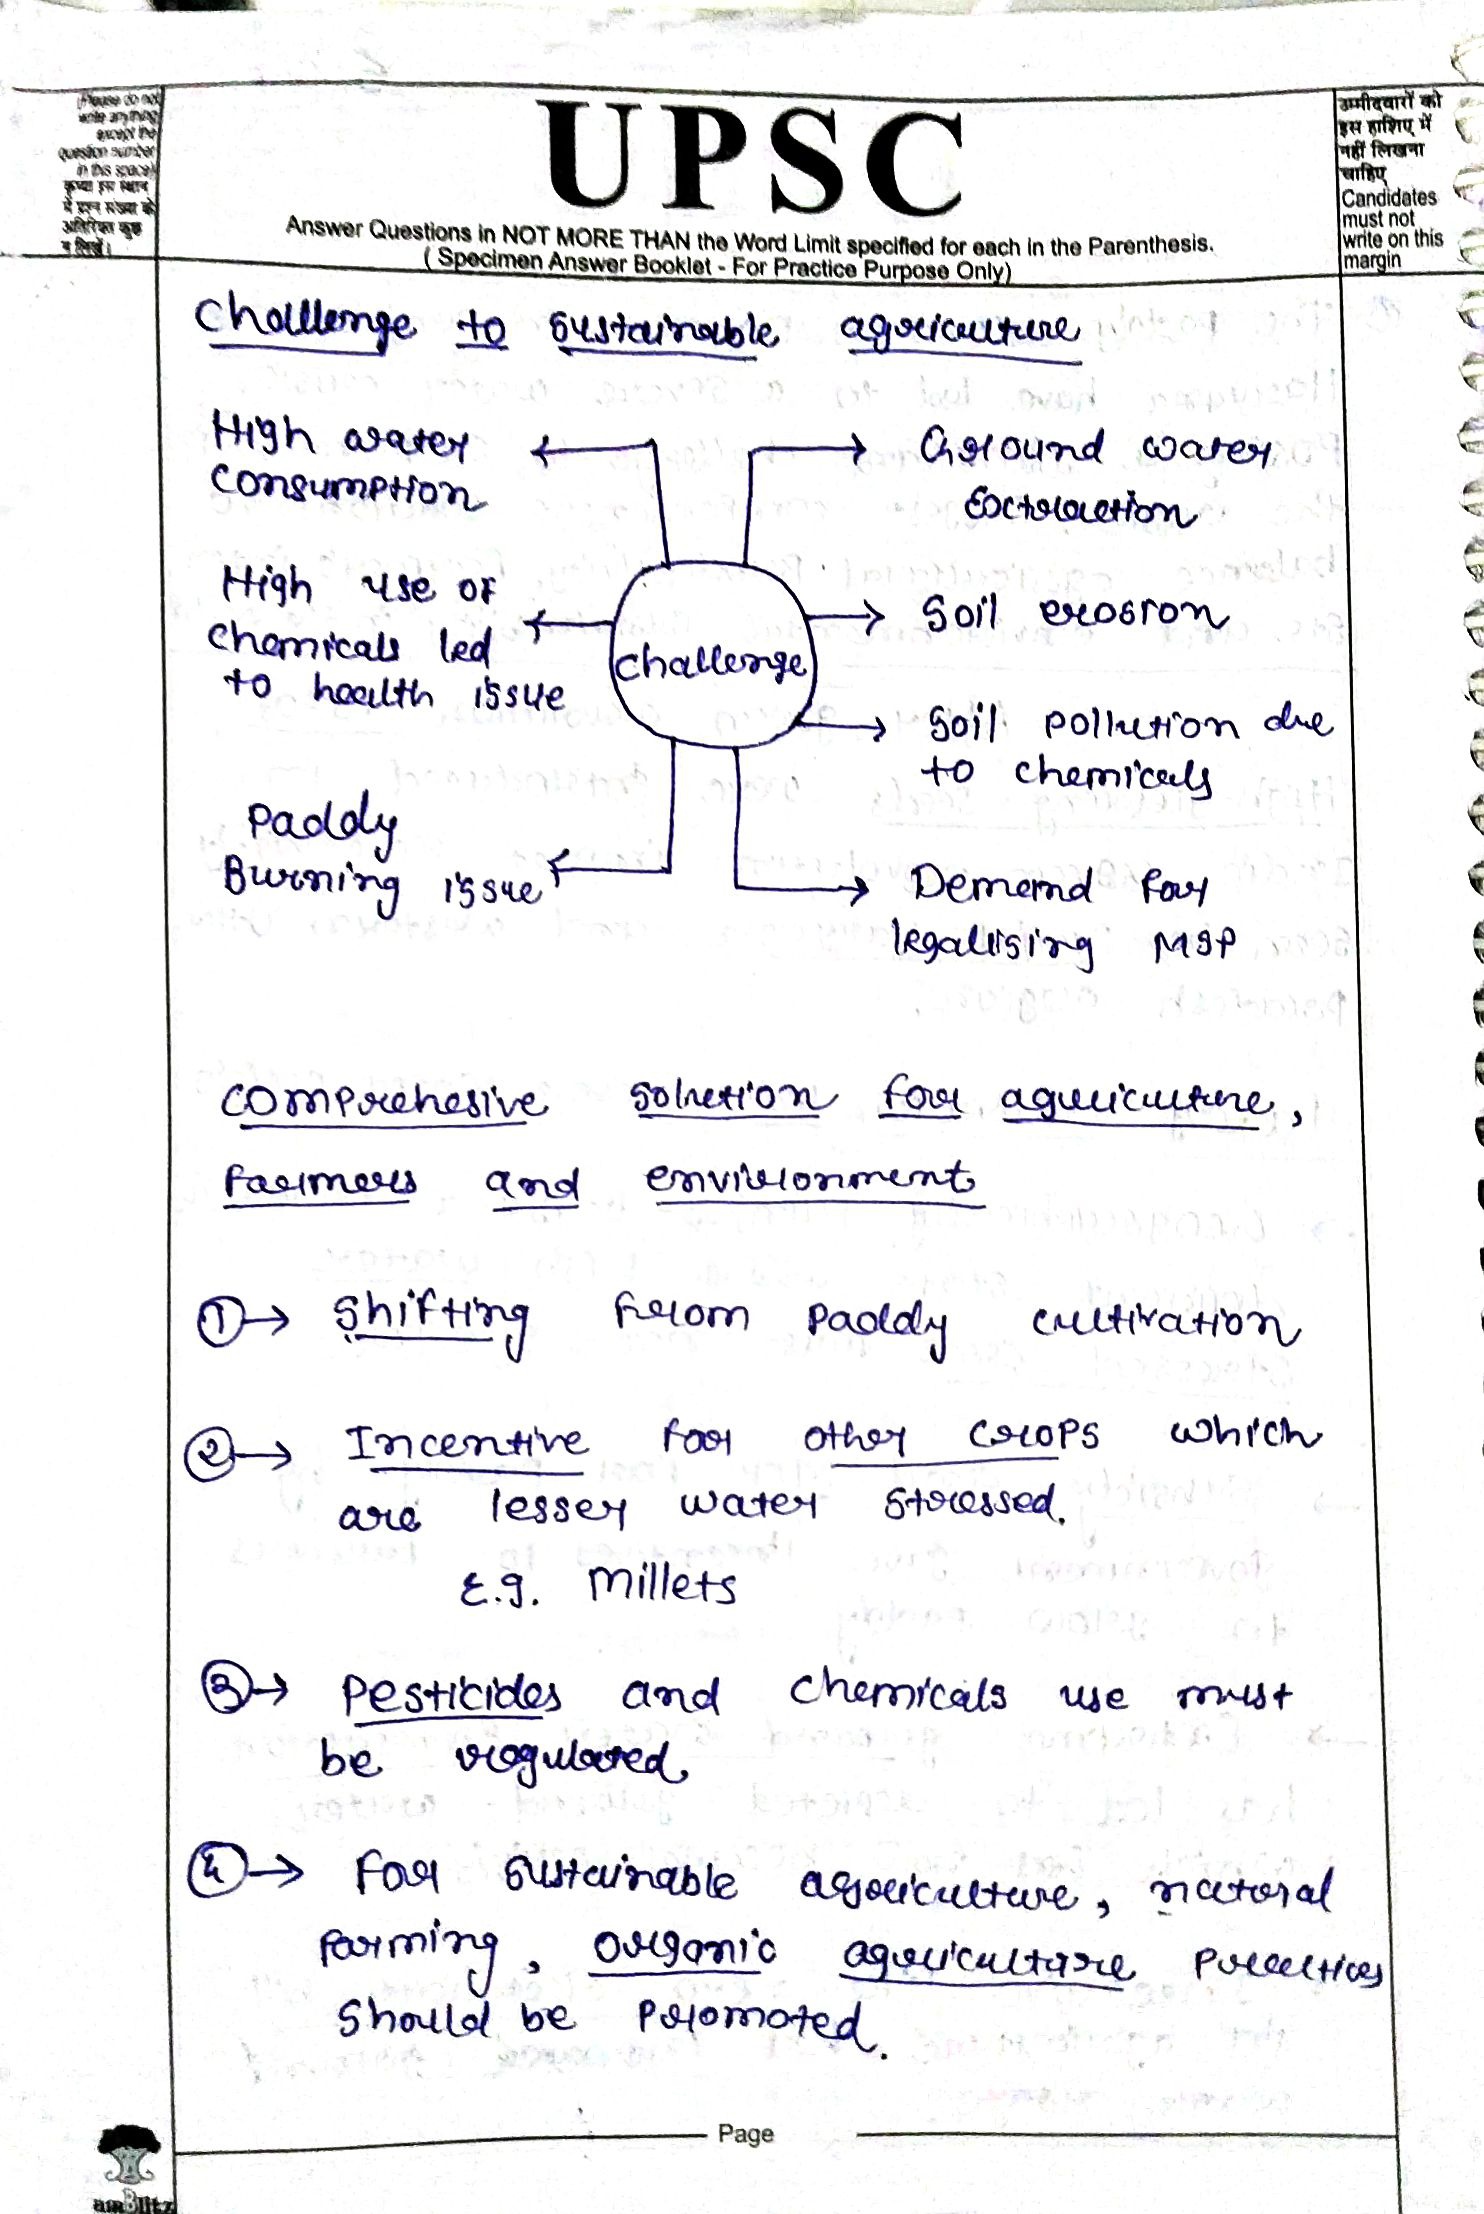 (Please do not
write anything
except the
question number
in this space)
कृपया इस स्थान
में प्रश्न संख्या के
अतिरिक्त कुछ
न लिखें।
UPSC
Answer Questions in NOT MORE THAN the Word Limit specified for each in the Parenthesis.
( Specimen Answer Booklet - For Practice Purpose Only)
उम्मीदवारों को
इस हाशिए में
नहीं लिखना
चाहिए
Candidates
must not
write on this
margin
Challenge to sustainable agriculture
High water
consumption
Ground water
Extraction
High use of
chemicals led
to health issue
challenge
Soil erosion
Soil pollution due
to chemicals
Paddy
Burning issue
Demand for
legalising MSP
comprehesive solution for agriculture,
farmers and environment
① → Shifting from paddy cultivation
② → Incentive for other crops which
are lesser water stressed.
E.g. Millets
③ → Pesticides and chemicals use must
be regulated.
④ → For sustainable agriculture, natural
farming, organic agriculture practices
should be promoted.
Page
amBlitz